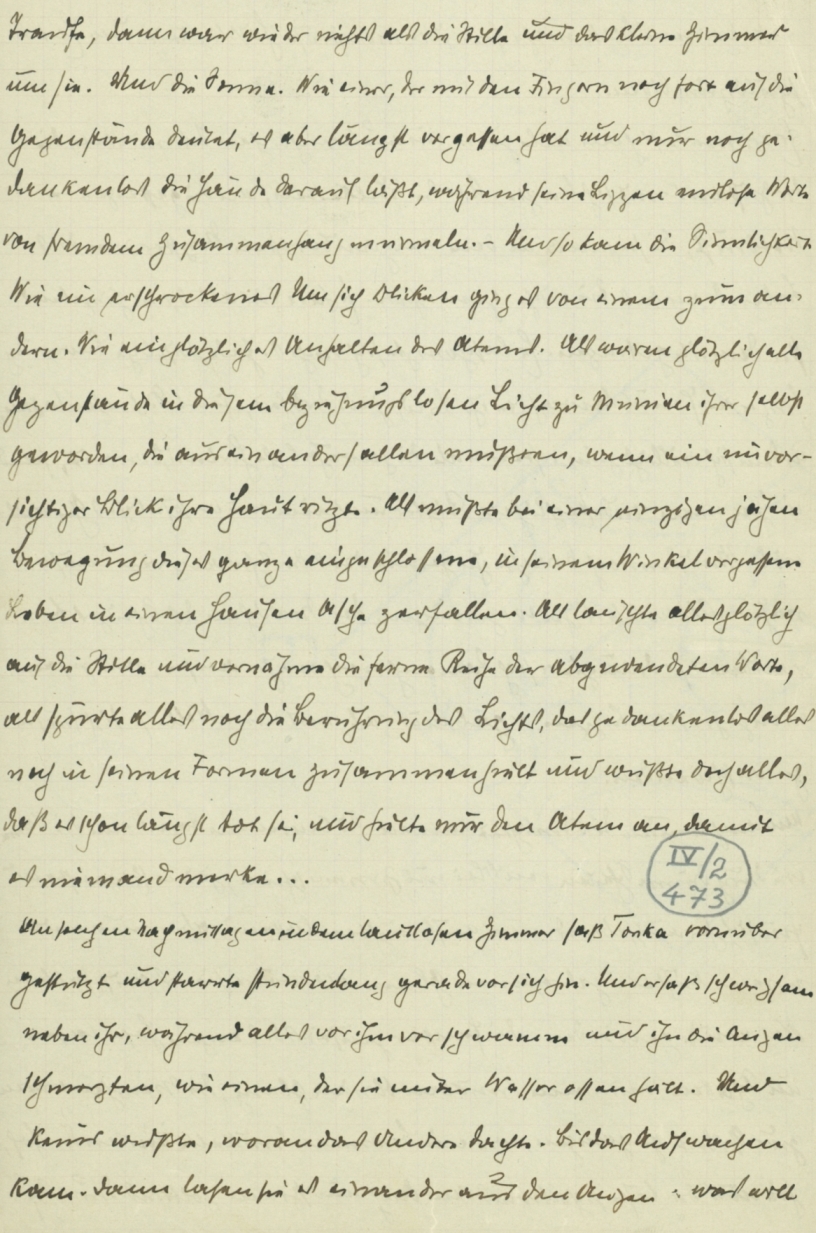 Straße, dann war wieder nichts als die Stille und das kleine Zimmer
um sie. Und die Sonne. Wie einer, der mit den Fingern noch fort auf die
Gegenstände deutet, es aber längst vergessen hat und nur noch ge-
dankenlos die Hände darauf läßt, während seine Lippen endlose Worte
von fremdem Zusammenhang murmeln. – Und so kam die Sinnlichkeit
Wie ein erschrockenes Um sich Blicken ging es von einem zum an-
dern. Wie ein plötzliches Anhalten des Atems. Als wären plötzlich alle
Gegenstände in diesem beziehungslosen Licht zu Mumien ihrer selbst
geworden, die auseinanderfallen müßten, wenn ein unvor-
sichtiger Blick ihre Haut ritzte. Als müßte bei einer einzigen jähen
Bewegung dieses ganze eingeschlossene, in seinem Winkel vergessene
Leben in einen Haufen Asche zerfallen. Als lauschte alles plötzlich
auf die Stille und vernähme die ferne Reihe der abgewendeten Worte,
als spürte alles noch die Berührung des Lichts, das gedankenlos alles
noch in seinen Formen zusammenhielt und wüßte doch alles,
daß es schon längst tot sei, und hielte nur den Atem an, damit
es niemand merke...
IV/2
473
An solchen Nachmittagen in dem lautlosen Zimmer saß Tonka vornüber
gestützt und starrte stundenlang gerade vor sich hin. Und er saß schweigsam
neben ihr, während alles vor ihm verschwamm und ihn die Augen
schmerzten, wie einen, der sie unter Wasser offen hält. Und
keines wußte, woran das Andere dachte. Bis das Aufwachen
kam. Dann lasen sie es einander aus den Augen: was will